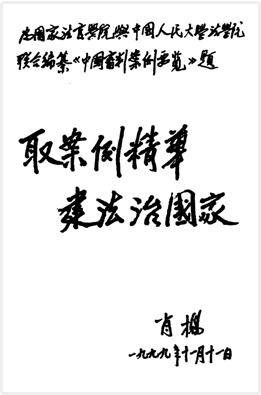 为国家法官学院與中国人民大學法學院
联合编纂《中国審判案例要览》题
取案例精華
建法治國家
肖揚
一九九九年十一月十一日